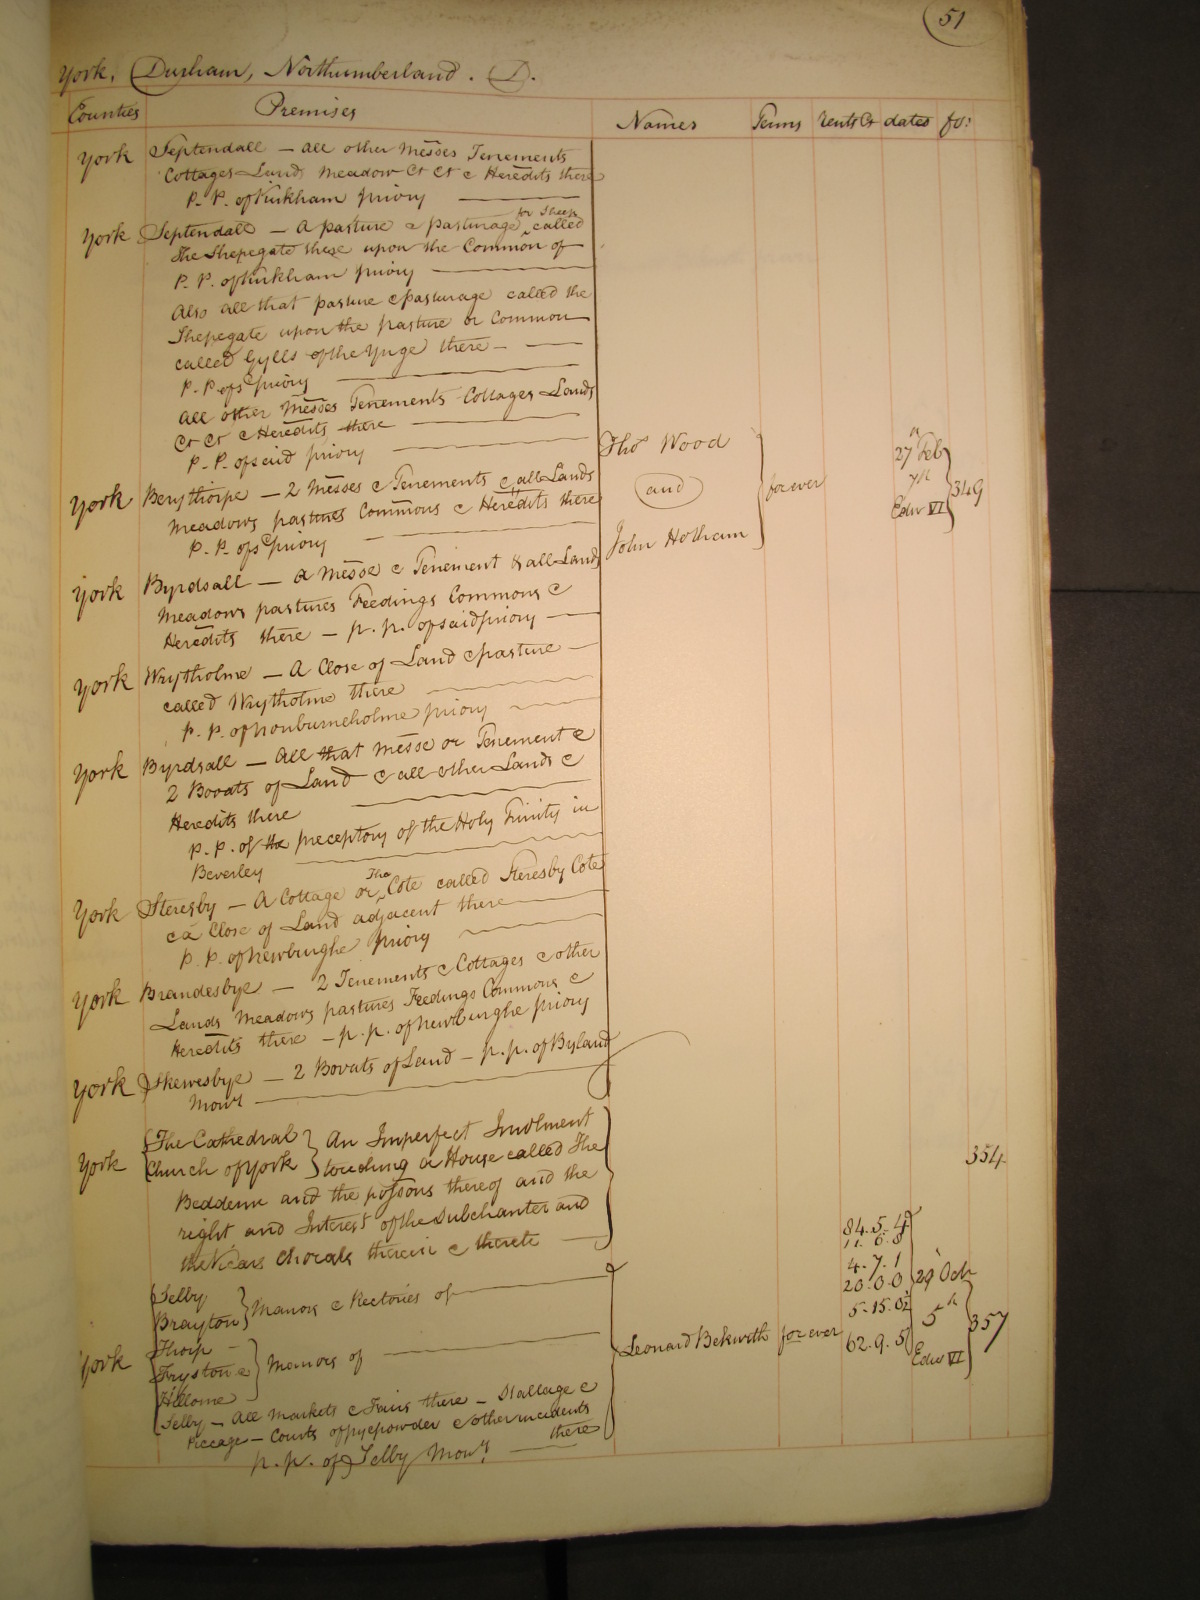 51
York, Durham, Northumberland. D.
Counties Premises Names Terms rents &c dates fo:
York Septendall — all other Messes Tenements
Cottages Lands Meadow &c &c & Heredits there
P. P. of Kirkham priory
York Septendall — A pasture & pasturage for Sheep called
The Shepegate there upon the Common of
P. P. of Kirkham priory
Also all that pasture & pasturage called the
Shepegate upon the pasture or Common
called Gylls of the Ynge there —
P. P. of sd priory
All other Messes Tenements Cottages Lands
&c &c & Heredits there
P. P. of said priory
York Berythorpe — 2 Messes & Tenements & all Lands
Meadows pastures Commons & Heredits there
P. P. of sd priory
Thos Wood
and
John Hotham
for ever
27th Feby
7th
Edw VI
349
York Byrdsall — A Messe & Tenement & all Lands
Meadows pastures Feedings Commons &
Heredits there — p. p. of said priory —
York Wrytholme — A Close of Land & pasture —
called Wrytholme there
P. P. of Nonburneholme priory
York Byrdsall — All that Messe or Tenement &
2 Bovats of Land & all other Lands &
Heredits there
P. P. of the preceptory of the Holy Trinity in
Beverley
York Steresby — A Cottage or The Cote called Steresby Cote
& a Close of Land adjacent there
P. P. of Newburghe priory
York Brandesbye — 2 Tenements & Cottages & other
Lands Meadows pastures Feedings Commons &
Heredits there — p. p. of Newburghe priory
York Skewesbye — 2 Bovats of Land — p. p. of Byland
Mony
York The Cathedral Church of York An Imperfect Inrolment
touching a House called The
Beddenn and the possons thereof and the
right and Interest of the Subchanter and
the Vicars Chorals therein & thereto
354
York Selby
Brayton Manors & Rectories of
Thorp —
Frystone Manors of
Hillome
Selby — All Markets & Fairs there — Stallage &
Piccage — Courts of pyepowder & other incidents
there
p. p. of Selby Mony
Leonard Bekwith for ever
84. 5. 4
11. 6. 8
4. 7. 1
20. 0. 0
5. 15. 0½
62. 9. 5
29 Octr
5th
Edw VI
357